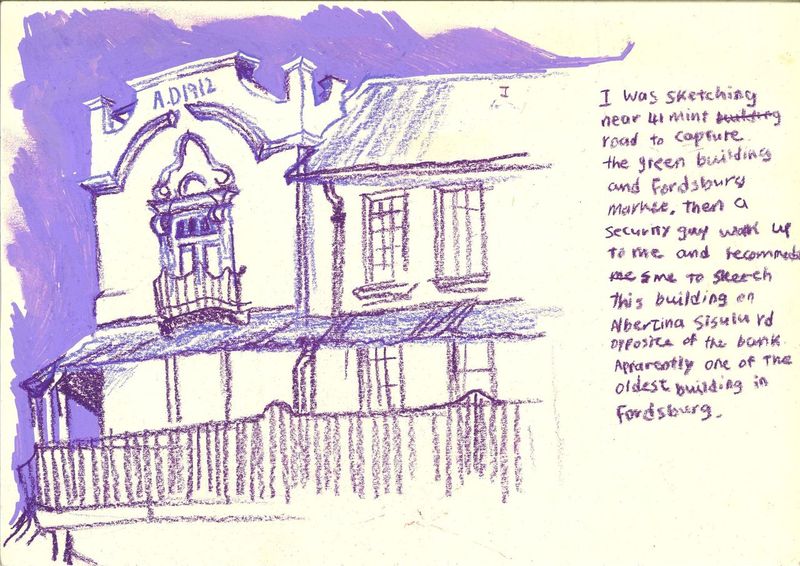 A.D1912
I
I was sketching
near 41 mint building
road to capture
the green building
and Fordsburg
Market, Then a
security guy walk up
to me and recommede
me s me to sketch
This building on
Albertina Sisulu rd
opposite of the bank.
Apparently one of The
oldest building in
Fordsburg.